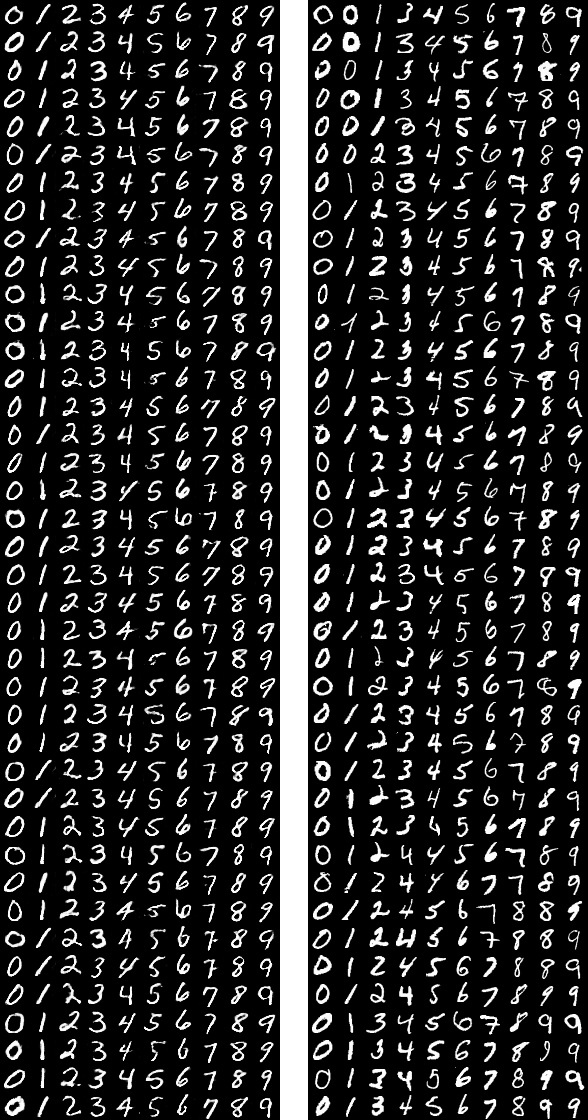 0 1 2 3 4 5 6 7 8 9 0 0 1 3 4 5 6 7 8 9
0 1 2 3 4 5 6 7 8 9 0 0 1 3 4 5 6 7 8 9
0 1 2 3 4 5 6 7 8 9 0 0 1 3 4 5 6 7 8 9
0 1 2 3 4 5 6 7 8 9 0 0 1 3 4 5 6 7 8 9
0 1 2 3 4 5 6 7 8 9 0 0 1 3 4 5 6 7 8 9
0 1 2 3 4 5 6 7 8 9 0 0 2 3 4 5 6 7 8 9
0 1 2 3 4 5 6 7 8 9 0 1 2 3 4 5 6 7 8 9
0 1 2 3 4 5 6 7 8 9 0 1 2 3 4 5 6 7 8 9
0 1 2 3 4 5 6 7 8 9 0 1 2 3 4 5 6 7 8 9
0 1 2 3 4 5 6 7 8 9 0 1 2 3 4 5 6 7 8 9
0 1 2 3 4 5 6 7 8 9 0 1 2 3 4 5 6 7 8 9
0 1 2 3 4 5 6 7 8 9 0 1 2 3 4 5 6 7 8 9
0 1 2 3 4 5 6 7 8 9 0 1 2 3 4 5 6 7 8 9
0 1 2 3 4 5 6 7 8 9 0 1 2 3 4 5 6 7 8 9
0 1 2 3 4 5 6 7 8 9 0 1 2 3 4 5 6 7 8 9
0 1 2 3 4 5 6 7 8 9 0 1 2 3 4 5 6 7 8 9
0 1 2 3 4 5 6 7 8 9 0 1 2 3 4 5 6 7 8 9
0 1 2 3 4 5 6 7 8 9 0 1 2 3 4 5 6 7 8 9
0 1 2 3 4 5 6 7 8 9 0 1 2 3 4 5 6 7 8 9
0 1 2 3 4 5 6 7 8 9 0 1 2 3 4 5 6 7 8 9
0 1 2 3 4 5 6 7 8 9 0 1 2 3 4 5 6 7 9 9
0 1 2 3 4 5 6 7 8 9 0 1 2 3 4 5 6 7 8 9
0 1 2 3 4 5 6 7 8 9 0 1 2 3 4 5 6 7 8 9
0 1 2 3 4 5 6 7 8 9 0 1 2 3 4 5 6 7 8 9
0 1 2 3 4 5 6 7 8 9 0 1 2 3 4 5 6 7 8 9
0 1 2 3 4 5 6 7 8 9 0 1 2 3 4 5 6 7 8 9
0 1 2 3 4 5 6 7 8 9 0 1 2 3 4 5 6 7 8 9
0 1 2 3 4 5 6 7 8 9 0 1 2 3 4 5 6 7 8 9
0 1 2 3 4 5 6 7 8 9 0 1 2 3 4 5 6 7 8 9
0 1 2 3 4 5 6 7 8 9 0 1 2 3 4 5 6 7 8 9
0 1 2 3 4 5 6 7 8 9 0 1 2 4 4 5 6 7 8 9
0 1 2 3 4 5 6 7 8 9 0 1 2 4 4 6 7 7 8 9
0 1 2 3 4 5 6 7 8 9 0 1 2 4 5 6 7 8 8 9
0 1 2 3 4 5 6 7 8 9 0 1 2 4 5 6 7 8 8 9
0 1 2 3 4 5 6 7 8 9 0 1 2 4 5 6 7 8 8 9
0 1 2 3 4 5 6 7 8 9 0 1 2 4 5 6 7 8 9 9
0 1 2 3 4 5 6 7 8 9 0 1 3 4 5 6 7 8 9 9
0 1 2 3 4 5 6 7 8 9 0 1 3 4 5 6 7 8 9 9
0 1 2 3 4 5 6 7 8 9 0 1 3 4 5 6 7 8 9 9
0 1 2 3 4 5 6 7 8 9 0 1 3 4 5 6 7 8 9 9